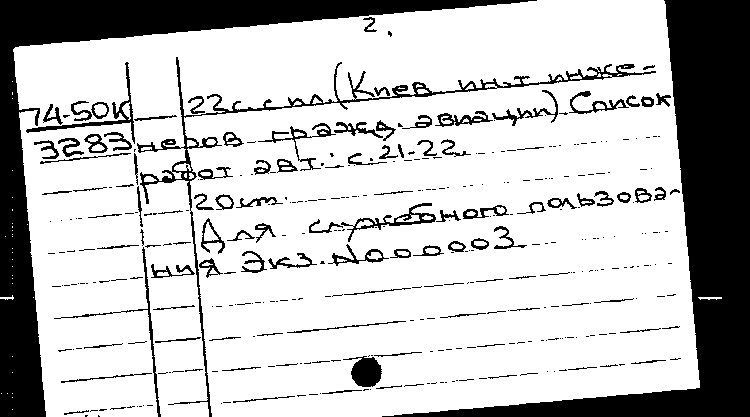 2.
74-50К 22с. с ил. (Киев ин.т инже=
3283 неров гражд. авиации). Список
работ авт.: с. 21-22.
20 см.
Для служебного пользова-
ния Экз. N000003